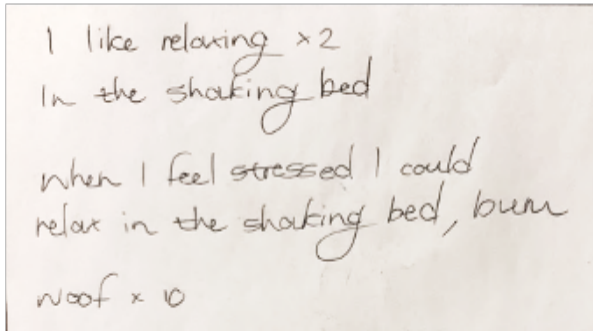 I like relaxing x2
In the shaking bed
when I feel stressed I could
relax in the shaking bed, bum
woof x 10